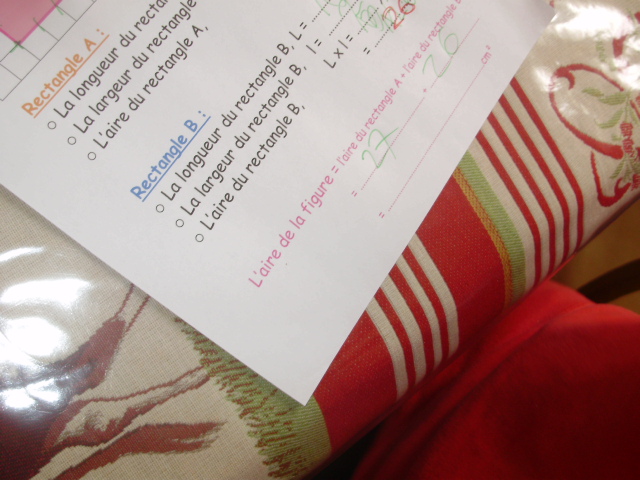 Rectangle A :
La longueur du rectan
La largeur du rectangle
L'aire du rectangle A,
Rectangle B :
La longueur du rectangle B, L =
La largeur du rectangle B, l =
L'aire du rectangle B, L x l =
= 26
L'aire de la figure = l'aire du rectangle A + l'aire du rectangle
= 27 + 26
= cm²